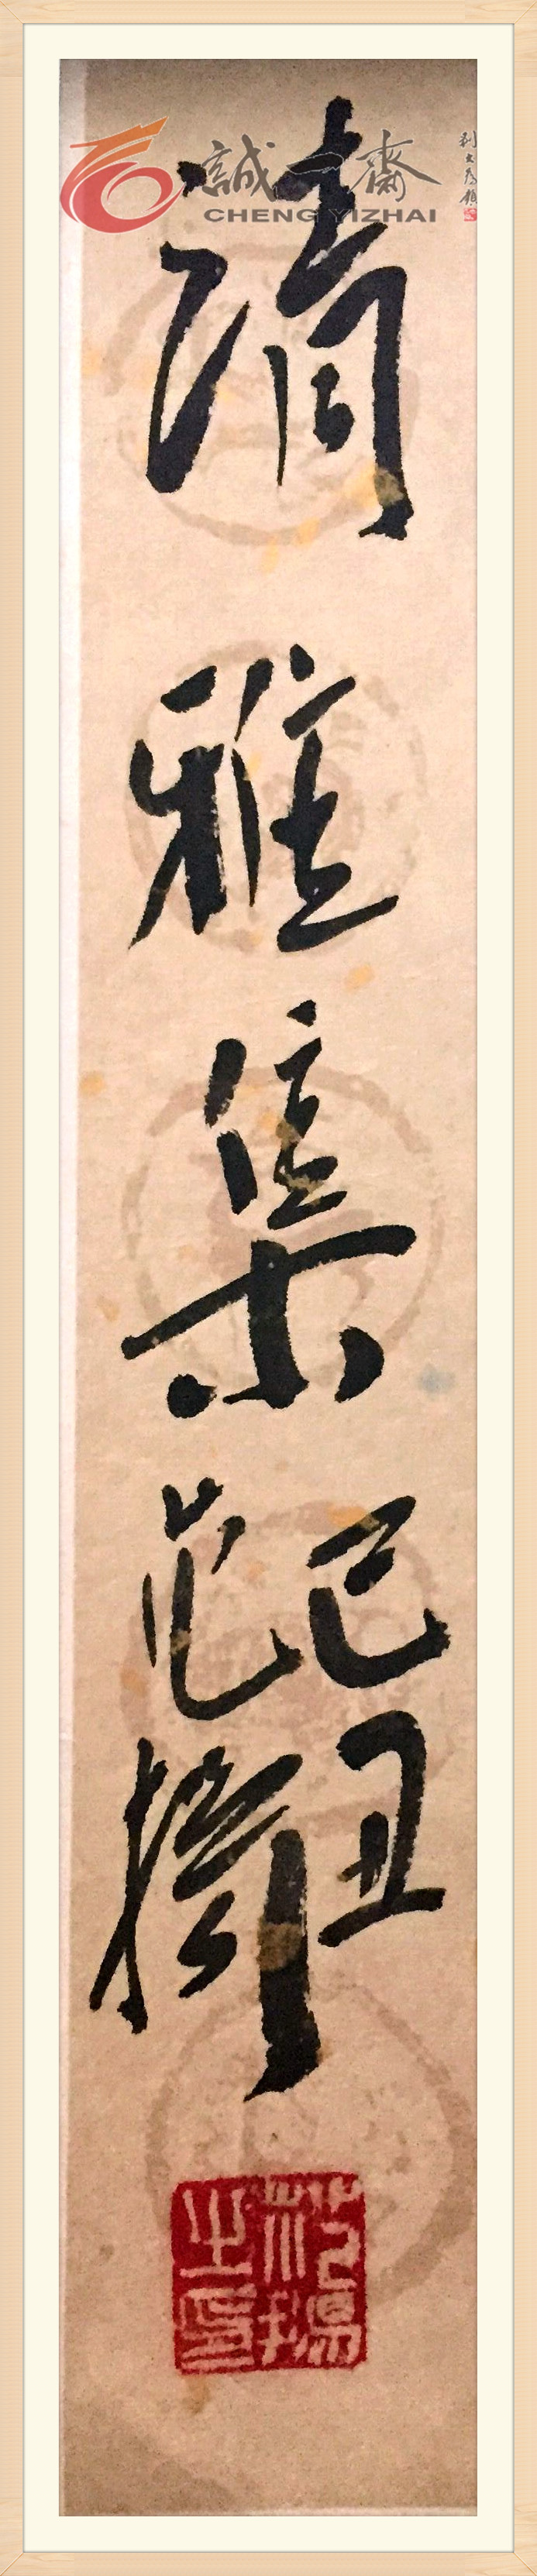 誠一齋
CHENG YIZHAI
清雅集
己丑
范揚
范揚之印